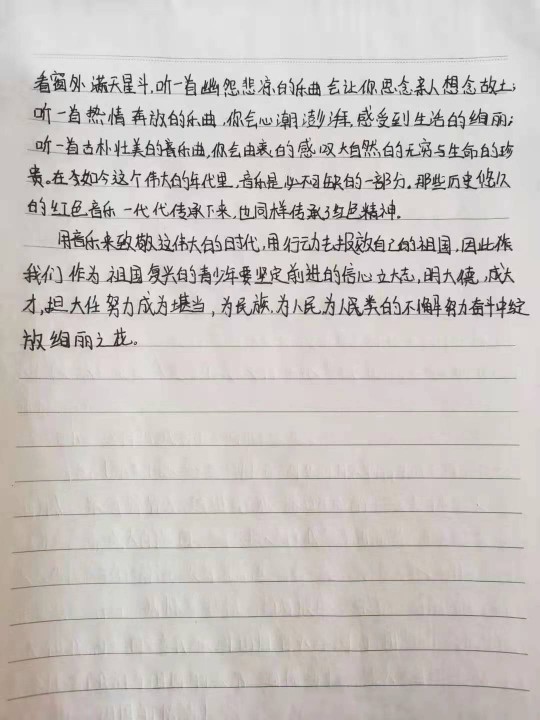 看窗外满天星斗,听一首幽怨悲凉的乐曲会让你思念亲人想念故土;
听一首热情奔放的乐曲,你会心潮澎湃,感受到生活的绚丽;
听一首古朴壮美的音乐曲,你会由衷的感叹大自然的无穷与生命的珍
贵。在如今这个伟大的年代里,音乐是必不可缺的一部分。那些历史悠久
的红色音乐一代代传承下来,也同样传承了红色精神。
用音乐来致敬这伟大的时代,用行动去报效自己的祖国,因此
我们作为祖国复兴的青少年要坚定前进的信心立大志,明大德,成大
才,担大任努力成为堪当,为民族,为人民,为人民类的不懈努力奋斗中绽
放绚丽之花。